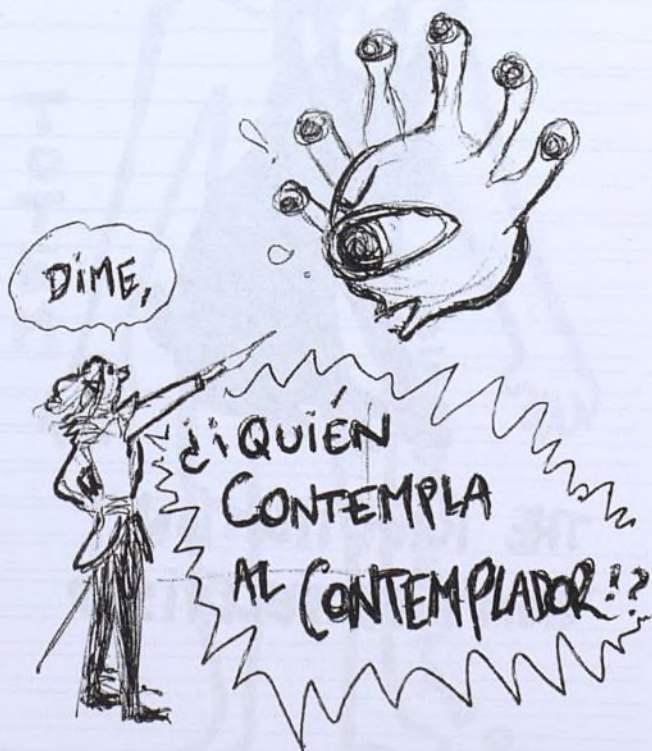 DIME,
¿¡QUIÉN
CONTEMPLA
AL CONTEMPLADOR!?